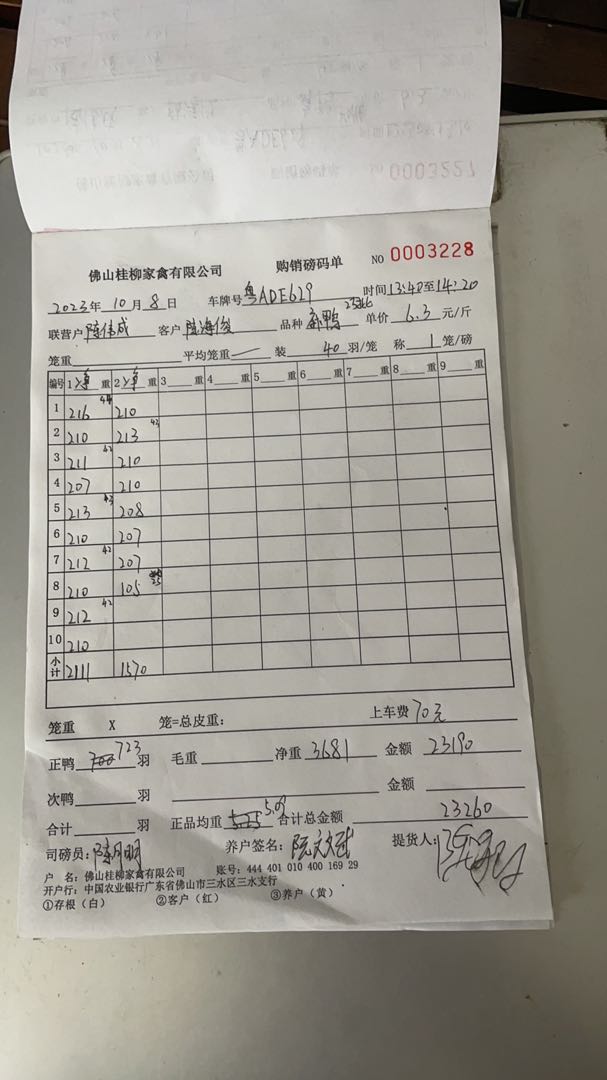 0003227
佛山桂柳家禽有限公司 购销磅码单 NO 0003228
2023年10月8日 车牌号 粤ADE629 时间13:40至14:20
联营户 陈伟成 客户 陈海俊 品种 鸭 单价 6.3 元/斤
笼重 平均笼重 装 40 羽/笼 称 1 笼/磅
编号 1净重 2净重 3 重 4 重 5 重 6 重 7 重 8 重 9 重
1 216 44 210
2 210 213 42
3 211 42 210
4 207 210
5 213 43 208
6 210 207
7 212 42 207
8 210 105 25
9 212 42
10 210
小计 2111 1570
笼重 X 笼=总皮重: 上车费 70元
正鸭 723 羽 毛重 净重 3681 金额 23190
次鸭 羽 金额
合计 羽 正品均重 5.25 5.09 合计总金额 23260
司磅员: 陈月明 养户签名: 提货人:
户 名: 佛山桂柳家禽有限公司 账号: 444 401 010 400 169 29
开户行: 中国农业银行广东省佛山市三水区三水支行
①存根(白) ②客户(红) ③养户(黄)